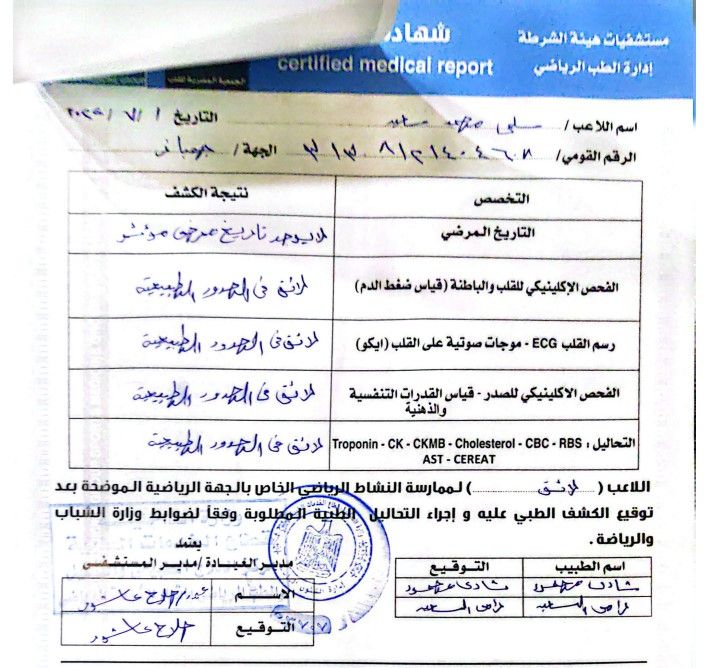 مستشفيات هيئة الشرطة
إدارة الطب الرياضي
شهادة
certified medical report
الجمعية المصرية للقلب
اسم اللاعب / سلمى محمد سعيد
التاريخ ١ / ٧ /
الرقم القومي /
الجهة / جمباز
التخصص نتيجة الكشف
التاريخ المرضي لا يوجد تاريخ مرضى مؤثر
الفحص الإكلينيكي للقلب والباطنة (قياس ضغط الدم) لائق فى الحدود الطبيعية
رسم القلب ECG - موجات صوتية على القلب (ايكو) لائق فى الحدود الطبيعية
الفحص الاكلينيكي للصدر - قياس القدرات التنفسية والذهنية لائق فى الحدود الطبيعية
التحاليل : Troponin - CK - CKMB - Cholesterol - CBC - RBS لائق فى الحدود الطبيعية
AST - CEREAT
اللاعب ( لائق ) لممارسة النشاط الرياضي الخاص بالجهة الرياضية الموضحة بعد
توقيع الكشف الطبي عليه و إجراء التحاليل الطبية المطلوبة وفقاً لضوابط وزارة الشباب
والرياضة .
اسم الطبيب التوقيع
شادى محمود شادى محمود
يعتمد
مدير العيادة / مدير المستشفى
الاسم
التوقيع